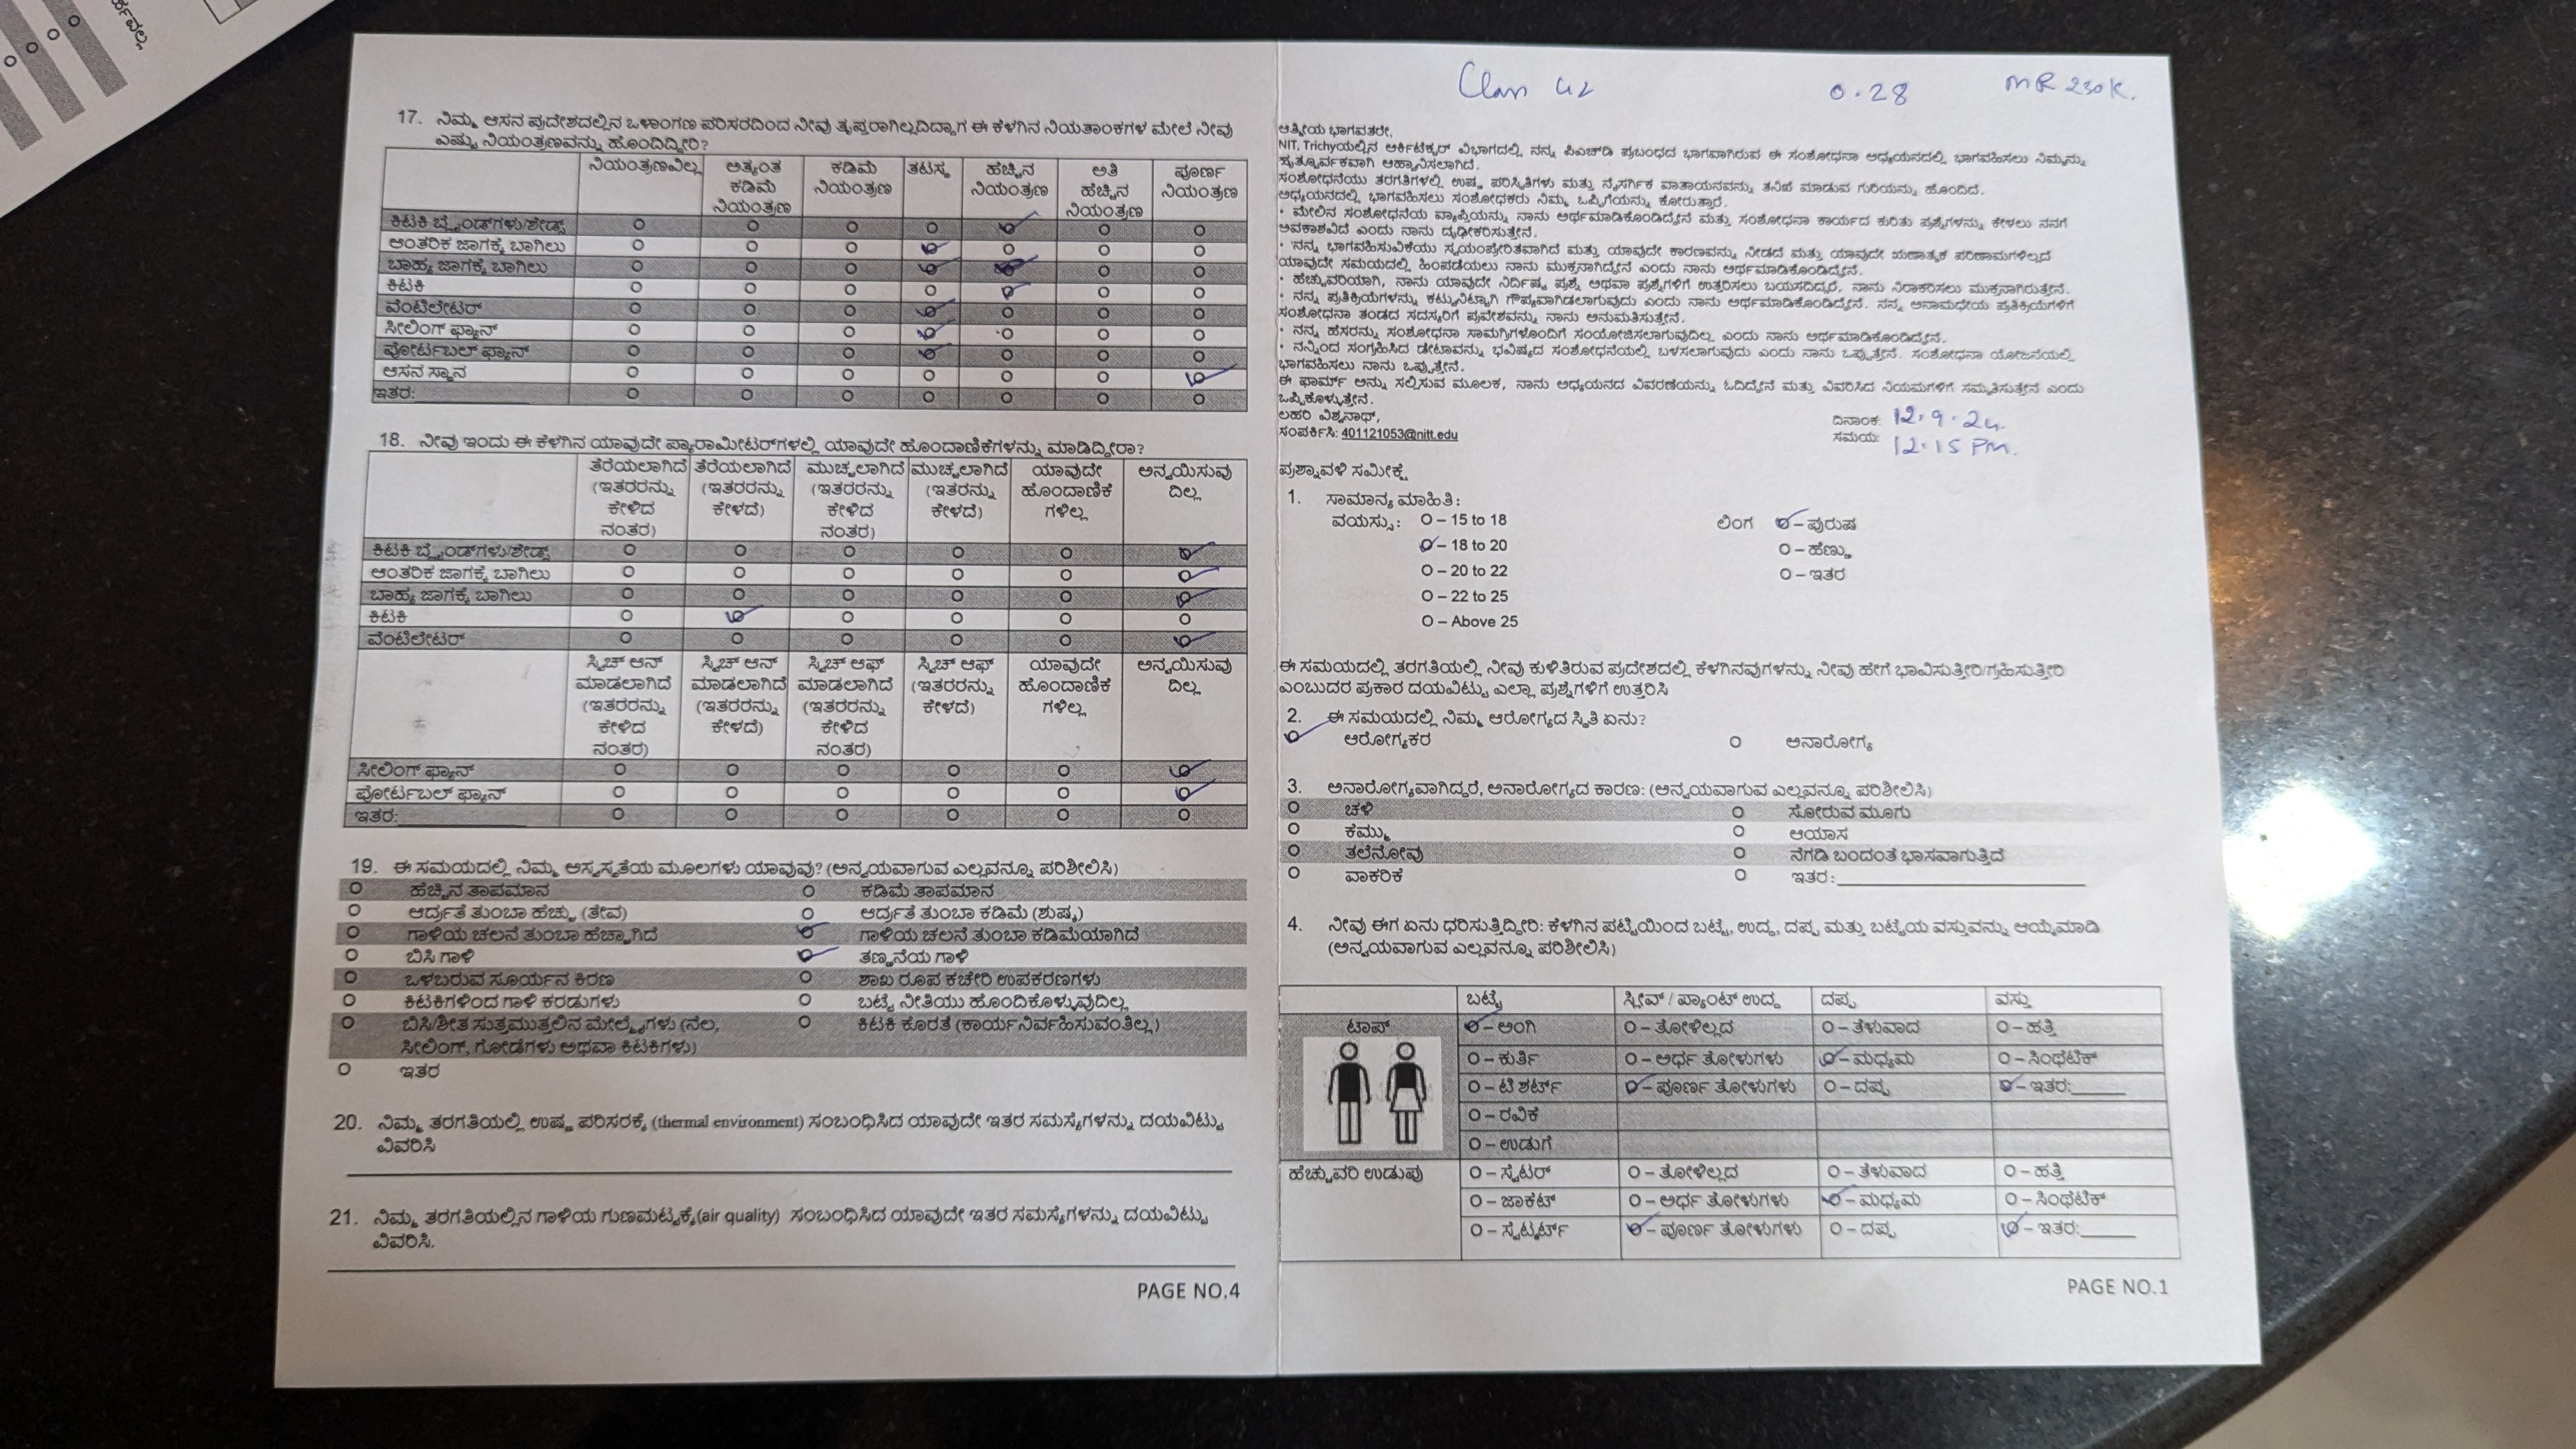 17. ನಿಮ್ಮ ಆಸನ ಪ್ರದೇಶದಲ್ಲಿನ ಒಳಾಂಗಣ ಪರಿಸರದಿಂದ ನೀವು ತೃಪ್ತರಾಗಿಲ್ಲದಿದ್ದಾಗ ಈ ಕೆಳಗಿನ ನಿಯತಾಂಕಗಳ ಮೇಲೆ ನೀವು
ಎಷ್ಟು ನಿಯಂತ್ರಣವನ್ನು ಹೊಂದಿದ್ದೀರಿ?
ನಿಯಂತ್ರಣವಿಲ್ಲ ಅತ್ಯಂತ ಕಡಿಮೆ ನಿಯಂತ್ರಣ ಕಡಿಮೆ ನಿಯಂತ್ರಣ ತಟಸ್ಥ ಹೆಚ್ಚಿನ ನಿಯಂತ್ರಣ ಅತಿ ಹೆಚ್ಚಿನ ನಿಯಂತ್ರಣ ಪೂರ್ಣ ನಿಯಂತ್ರಣ
ಕಿಟಕಿ ಬ್ಲೈಂಡ್‌ಗಳು/ಶೇಡ್ಸ್
ಆಂತರಿಕ ಜಾಗಕ್ಕೆ ಬಾಗಿಲು
ಬಾಹ್ಯ ಜಾಗಕ್ಕೆ ಬಾಗಿಲು
ಕಿಟಕಿ
ವೆಂಟಿಲೇಟರ್
ಸೀಲಿಂಗ್ ಫ್ಯಾನ್
ಪೋರ್ಟಬಲ್ ಫ್ಯಾನ್
ಆಸನ ಸ್ಥಾನ
ಇತರ:
18. ನೀವು ಇಂದು ಈ ಕೆಳಗಿನ ಯಾವುದೇ ಪ್ಯಾರಾಮೀಟರ್‌ಗಳಲ್ಲಿ ಯಾವುದೇ ಹೊಂದಾಣಿಕೆಗಳನ್ನು ಮಾಡಿದ್ದೀರಾ?
ತೆರೆಯಲಾಗಿದೆ (ಇತರರನ್ನು ಕೇಳಿದ ನಂತರ) ತೆರೆಯಲಾಗಿದೆ (ಇತರರನ್ನು ಕೇಳದೆ) ಮುಚ್ಚಲಾಗಿದೆ (ಇತರರನ್ನು ಕೇಳಿದ ನಂತರ) ಮುಚ್ಚಲಾಗಿದೆ (ಇತರನ್ನು ಕೇಳದೆ) ಯಾವುದೇ ಹೊಂದಾಣಿಕೆ ಗಳಿಲ್ಲ ಅನ್ವಯಿಸುವು ದಿಲ್ಲ
ಕಿಟಕಿ ಬ್ಲೈಂಡ್‌ಗಳು/ಶೇಡ್ಸ್
ಆಂತರಿಕ ಜಾಗಕ್ಕೆ ಬಾಗಿಲು
ಬಾಹ್ಯ ಜಾಗಕ್ಕೆ ಬಾಗಿಲು
ಕಿಟಕಿ
ವೆಂಟಿಲೇಟರ್
ಸ್ವಿಚ್ ಆನ್ ಮಾಡಲಾಗಿದೆ (ಇತರರನ್ನು ಕೇಳಿದ ನಂತರ) ಸ್ವಿಚ್ ಆನ್ ಮಾಡಲಾಗಿದೆ (ಇತರರನ್ನು ಕೇಳದೆ) ಸ್ವಿಚ್ ಆಫ್ ಮಾಡಲಾಗಿದೆ (ಇತರರನ್ನು ಕೇಳಿದ ನಂತರ) ಸ್ವಿಚ್ ಆಫ್ (ಇತರರನ್ನು ಕೇಳದೆ) ಯಾವುದೇ ಹೊಂದಾಣಿಕೆ ಗಳಿಲ್ಲ ಅನ್ವಯಿಸುವು ದಿಲ್ಲ
ಸೀಲಿಂಗ್ ಫ್ಯಾನ್
ಪೋರ್ಟಬಲ್ ಫ್ಯಾನ್
ಇತರ:
19. ಈ ಸಮಯದಲ್ಲಿ ನಿಮ್ಮ ಅಸ್ವಸ್ಥತೆಯ ಮೂಲಗಳು ಯಾವುವು? (ಅನ್ವಯವಾಗುವ ಎಲ್ಲವನ್ನೂ ಪರಿಶೀಲಿಸಿ)
ಹೆಚ್ಚಿನ ತಾಪಮಾನ ಕಡಿಮೆ ತಾಪಮಾನ
ಆರ್ದ್ರತೆ ತುಂಬಾ ಹೆಚ್ಚು (ತೇವ) ಆರ್ದ್ರತೆ ತುಂಬಾ ಕಡಿಮೆ (ಶುಷ್ಕ)
ಗಾಳಿಯ ಚಲನೆ ತುಂಬಾ ಹೆಚ್ಚಾಗಿದೆ ಗಾಳಿಯ ಚಲನೆ ತುಂಬಾ ಕಡಿಮೆಯಾಗಿದೆ
ಬಿಸಿ ಗಾಳಿ ತಣ್ಣನೆಯ ಗಾಳಿ
ಒಳಬರುವ ಸೂರ್ಯನ ಕಿರಣ ಶಾಖ ರೂಪ ಕಚೇರಿ ಉಪಕರಣಗಳು
ಕಿಟಕಿಗಳಿಂದ ಗಾಳಿ ಕರಡುಗಳು ಬಟ್ಟೆ ನೀತಿಯು ಹೊಂದಿಕೊಳ್ಳುವುದಿಲ್ಲ
ಬಿಸಿ/ಶೀತ ಸುತ್ತಮುತ್ತಲಿನ ಮೇಲ್ಮೈಗಳು (ನೆಲ, ಕಿಟಕಿ ಕೊರತೆ (ಕಾರ್ಯನಿರ್ವಹಿಸುವಂತಿಲ್ಲ)
ಸೀಲಿಂಗ್, ಗೋಡೆಗಳು ಅಥವಾ ಕಿಟಕಿಗಳು)
ಇತರ
20. ನಿಮ್ಮ ತರಗತಿಯಲ್ಲಿ ಉಷ್ಣ ಪರಿಸರಕ್ಕೆ (thermal environment) ಸಂಬಂಧಿಸಿದ ಯಾವುದೇ ಇತರ ಸಮಸ್ಯೆಗಳನ್ನು ದಯವಿಟ್ಟು
ವಿವರಿಸಿ
21. ನಿಮ್ಮ ತರಗತಿಯಲ್ಲಿನ ಗಾಳಿಯ ಗುಣಮಟ್ಟಕ್ಕೆ(air quality) ಸಂಬಂಧಿಸಿದ ಯಾವುದೇ ಇತರ ಸಮಸ್ಯೆಗಳನ್ನು ದಯವಿಟ್ಟು
ವಿವರಿಸಿ.
PAGE NO.4
0.28 MR 230K.
ಆತ್ಮೀಯ ಭಾಗವತರೇ,
NIT, Trichyಯಲ್ಲಿನ ಆರ್ಕಿಟೆಕ್ಚರ್ ವಿಭಾಗದಲ್ಲಿ ನನ್ನ ಪಿಎಚ್‌ಡಿ ಪ್ರಬಂಧದ ಭಾಗವಾಗಿರುವ ಈ ಸಂಶೋಧನಾ ಅಧ್ಯಯನದಲ್ಲಿ ಭಾಗವಹಿಸಲು ನಿಮ್ಮನ್ನು
ಹೃತ್ಪೂರ್ವಕವಾಗಿ ಆಹ್ವಾನಿಸಲಾಗಿದೆ.
ಸಂಶೋಧನೆಯು ತರಗತಿಗಳಲ್ಲಿ ಉಷ್ಣ ಪರಿಸ್ಥಿತಿಗಳು ಮತ್ತು ನೈಸರ್ಗಿಕ ವಾತಾಯನವನ್ನು ತನಿಖೆ ಮಾಡುವ ಗುರಿಯನ್ನು ಹೊಂದಿದೆ.
ಅಧ್ಯಯನದಲ್ಲಿ ಭಾಗವಹಿಸಲು ಸಂಶೋಧಕರು ನಿಮ್ಮ ಒಪ್ಪಿಗೆಯನ್ನು ಕೋರುತ್ತಾರೆ.
• ಮೇಲಿನ ಸಂಶೋಧನೆಯ ವ್ಯಾಪ್ತಿಯನ್ನು ನಾನು ಅರ್ಥಮಾಡಿಕೊಂಡಿದ್ದೇನೆ ಮತ್ತು ಸಂಶೋಧನಾ ಕಾರ್ಯದ ಕುರಿತು ಪ್ರಶ್ನೆಗಳನ್ನು ಕೇಳಲು ನನಗೆ
ಅವಕಾಶವಿದೆ ಎಂದು ನಾನು ದೃಢೀಕರಿಸುತ್ತೇನೆ.
• 'ನನ್ನ ಭಾಗವಹಿಸುವಿಕೆಯು ಸ್ವಯಂಪ್ರೇರಿತವಾಗಿದೆ ಮತ್ತು ಯಾವುದೇ ಕಾರಣವನ್ನು ನೀಡದೆ ಮತ್ತು ಯಾವುದೇ ಋಣಾತ್ಮಕ ಪರಿಣಾಮಗಳಿಲ್ಲದೆ
ಯಾವುದೇ ಸಮಯದಲ್ಲಿ ಹಿಂಪಡೆಯಲು ನಾನು ಮುಕ್ತನಾಗಿದ್ದೇನೆ ಎಂದು ನಾನು ಅರ್ಥಮಾಡಿಕೊಂಡಿದ್ದೇನೆ.
• ಹೆಚ್ಚುವರಿಯಾಗಿ, ನಾನು ಯಾವುದೇ ನಿರ್ದಿಷ್ಟ ಪ್ರಶ್ನೆ ಅಥವಾ ಪ್ರಶ್ನೆಗಳಿಗೆ ಉತ್ತರಿಸಲು ಬಯಸದಿದ್ದರೆ, ನಾನು ನಿರಾಕರಿಸಲು ಮುಕ್ತನಾಗಿರುತ್ತೇನೆ.
• ನನ್ನ ಪ್ರತಿಕ್ರಿಯೆಗಳನ್ನು ಕಟ್ಟುನಿಟ್ಟಾಗಿ ಗೌಪ್ಯವಾಗಿಡಲಾಗುವುದು ಎಂದು ನಾನು ಅರ್ಥಮಾಡಿಕೊಂಡಿದ್ದೇನೆ. ನನ್ನ ಅನಾಮಧೇಯ ಪ್ರತಿಕ್ರಿಯೆಗಳಿಗೆ
ಸಂಶೋಧನಾ ತಂಡದ ಸದಸ್ಯರಿಗೆ ಪ್ರವೇಶವನ್ನು ನಾನು ಅನುಮತಿಸುತ್ತೇನೆ.
• ನನ್ನ ಹೆಸರನ್ನು ಸಂಶೋಧನಾ ಸಾಮಗ್ರಿಗಳೊಂದಿಗೆ ಸಂಯೋಜಿಸಲಾಗುವುದಿಲ್ಲ ಎಂದು ನಾನು ಅರ್ಥಮಾಡಿಕೊಂಡಿದ್ದೇನೆ.
• ನನ್ನಿಂದ ಸಂಗ್ರಹಿಸಿದ ಡೇಟಾವನ್ನು ಭವಿಷ್ಯದ ಸಂಶೋಧನೆಯಲ್ಲಿ ಬಳಸಲಾಗುವುದು ಎಂದು ನಾನು ಒಪ್ಪುತ್ತೇನೆ. ಸಂಶೋಧನಾ ಯೋಜನೆಯಲ್ಲಿ
ಭಾಗವಹಿಸಲು ನಾನು ಒಪ್ಪುತ್ತೇನೆ.
ಈ ಫಾರ್ಮ್ ಅನ್ನು ಸಲ್ಲಿಸುವ ಮೂಲಕ, ನಾನು ಅಧ್ಯಯನದ ವಿವರಣೆಯನ್ನು ಓದಿದ್ದೇನೆ ಮತ್ತು ವಿವರಿಸಿದ ನಿಯಮಗಳಿಗೆ ಸಮ್ಮತಿಸುತ್ತೇನೆ ಎಂದು
ಒಪ್ಪಿಕೊಳ್ಳುತ್ತೇನೆ.
ಲಹರಿ ವಿಶ್ವನಾಥ್,
ಸಂಪರ್ಕಿಸಿ: 401121053@nitt.edu
ದಿನಾಂಕ: 12.9.24.
ಸಮಯ: 12.15 PM.
ಪ್ರಶ್ನಾವಳಿ ಸಮೀಕ್ಷೆ
1. ಸಾಮಾನ್ಯ ಮಾಹಿತಿ:
ವಯಸ್ಸು: O – 15 to 18 ಲಿಂಗ O – ಪುರುಷ
O – 18 to 20 O – ಹೆಣ್ಣು
O – 20 to 22 O – ಇತರ
O – 22 to 25
O – Above 25
ಈ ಸಮಯದಲ್ಲಿ ತರಗತಿಯಲ್ಲಿ ನೀವು ಕುಳಿತಿರುವ ಪ್ರದೇಶದಲ್ಲಿ ಕೆಳಗಿನವುಗಳನ್ನು ನೀವು ಹೇಗೆ ಭಾವಿಸುತ್ತೀರಿ/ಗ್ರಹಿಸುತ್ತೀರಿ
ಎಂಬುದರ ಪ್ರಕಾರ ದಯವಿಟ್ಟು ಎಲ್ಲಾ ಪ್ರಶ್ನೆಗಳಿಗೆ ಉತ್ತರಿಸಿ
2. ಈ ಸಮಯದಲ್ಲಿ ನಿಮ್ಮ ಆರೋಗ್ಯದ ಸ್ಥಿತಿ ಏನು?
ಆರೋಗ್ಯಕರ ಅನಾರೋಗ್ಯ
3. ಅನಾರೋಗ್ಯವಾಗಿದ್ದರೆ, ಅನಾರೋಗ್ಯದ ಕಾರಣ: (ಅನ್ವಯವಾಗುವ ಎಲ್ಲವನ್ನೂ ಪರಿಶೀಲಿಸಿ)
ಚಳಿ ಸೋರುವ ಮೂಗು
ಕೆಮ್ಮು ಆಯಾಸ
ತಲೆನೋವು ನೆಗಡಿ ಬಂದಂತೆ ಭಾಸವಾಗುತ್ತಿದೆ
ವಾಕರಿಕೆ ಇತರ:
4. ನೀವು ಈಗ ಏನು ಧರಿಸುತ್ತಿದ್ದೀರಿ: ಕೆಳಗಿನ ಪಟ್ಟಿಯಿಂದ ಬಟ್ಟೆ, ಉದ್ದ, ದಪ್ಪ ಮತ್ತು ಬಟ್ಟೆಯ ವಸ್ತುವನ್ನು ಆಯ್ಕೆಮಾಡಿ
(ಅನ್ವಯವಾಗುವ ಎಲ್ಲವನ್ನೂ ಪರಿಶೀಲಿಸಿ)
ಬಟ್ಟೆ ಸ್ಲೀವ್ / ಪ್ಯಾಂಟ್ ಉದ್ದ ದಪ್ಪ ವಸ್ತು
ಟಾಪ್ O – ಅಂಗಿ O – ತೋಳಿಲ್ಲದ O – ತೆಳುವಾದ O – ಹತ್ತಿ
O – ಕುರ್ತಿ O – ಅರ್ಧ ತೋಳುಗಳು O – ಮಧ್ಯಮ O – ಸಿಂಥೆಟಿಕ್
O – ಟಿ ಶರ್ಟ್ O – ಪೂರ್ಣ ತೋಳುಗಳು O – ದಪ್ಪ O – ಇತರ:
O – ರವಿಕೆ
O – ಉಡುಗೆ
ಹೆಚ್ಚುವರಿ ಉಡುಪು O – ಸ್ವೆಟರ್ O – ತೋಳಿಲ್ಲದ O – ತೆಳುವಾದ O – ಹತ್ತಿ
O – ಜಾಕೆಟ್ O – ಅರ್ಧ ತೋಳುಗಳು O – ಮಧ್ಯಮ O – ಸಿಂಥೆಟಿಕ್
O – ಸ್ವೆಟ್ಶರ್ಟ್ O – ಪೂರ್ಣ ತೋಳುಗಳು O – ದಪ್ಪ O – ಇತರ:
PAGE NO.1